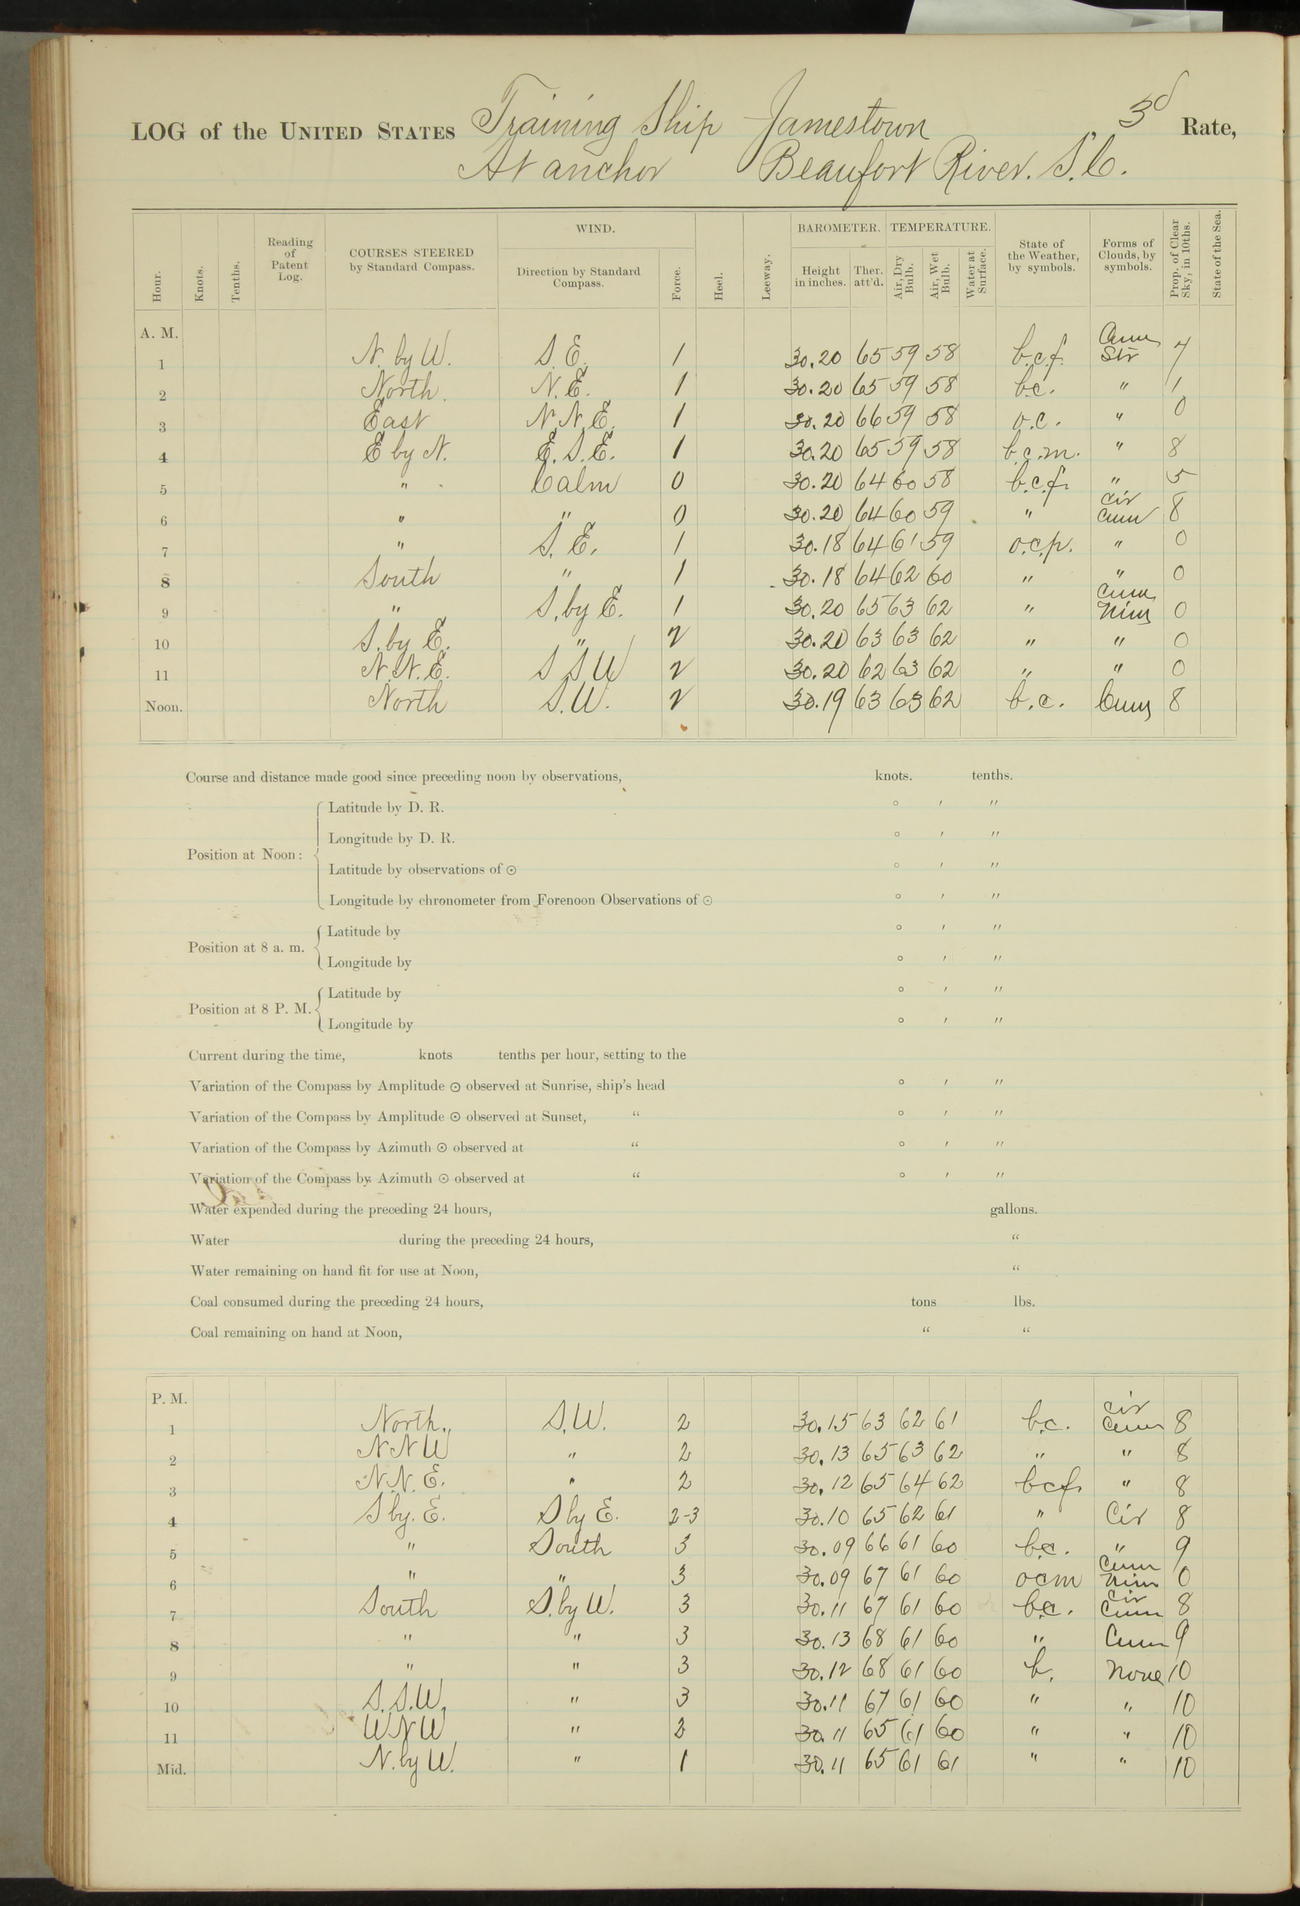 LOG of the UNITED STATES Training Ship Jamestown, 3d Rate,
At anchor Beaufort River. S.C.
Hour. Knots. Tenths. Reading of Patent Log. COURSES STEERED by Standard Compass. WIND. Direction by Standard Compass. Force. Heel. Leeway. BAROMETER. Height in inches. Ther. att'd. TEMPERATURE. Air, Dry Bulb. Air, Wet Bulb. Water at Surface. State of the Weather, by symbols. Forms of Clouds, by symbols. Prop. of Clear Sky, in 10ths. State of the Sea.
A. M.
1 N. by W. S.E. 1 30.20 65 59 58 b.c.f. Cum Str 7
2 North. N.E. 1 30.20 65 59 58 b.c. " 1
3 East N.N.E. 1 30.20 66 59 58 o.c. " 0
4 E by N. E.S.E. 1 30.20 65 59 58 b.c.m. " 8
5 " Calm 0 30.20 64 60 58 b.c.f. " 5
6 " " 0 30.20 64 60 59 " Cir Cum 8
7 " S.E. 1 30.18 64 61 59 o.c.p. " 0
8 South " 1 30.18 64 62 60 " " 0
9 " S. by E. 1 30.20 65 63 62 " Cum Nim 0
10 S. by E. " 2 30.20 63 63 62 " " 0
11 N.N.E. S S W 2 30.20 62 63 62 " " 0
Noon. North S.W. 2 30.19 63 63 62 b.c. Cum 8
Course and distance made good since preceding noon by observations, knots. tenths.
Position at Noon: Latitude by D. R. ° ′ ″
Longitude by D. R. ° ′ ″
Latitude by observations of ⊙ ° ′ ″
Longitude by chronometer from Forenoon Observations of ⊙ ° ′ ″
Position at 8 a. m. Latitude by ° ′ ″
Longitude by ° ′ ″
Position at 8 P. M. Latitude by ° ′ ″
Longitude by ° ′ ″
Current during the time, knots tenths per hour, setting to the
Variation of the Compass by Amplitude ⊙ observed at Sunrise, ship's head ° ′ ″
Variation of the Compass by Amplitude ⊙ observed at Sunset, “ ° ′ ″
Variation of the Compass by Azimuth ⊙ observed at “ ° ′ ″
Variation of the Compass by Azimuth ⊙ observed at “ ° ′ ″
Water expended during the preceding 24 hours, gallons.
Water during the preceding 24 hours, “
Water remaining on hand fit for use at Noon, “
Coal consumed during the preceding 24 hours, tons lbs.
Coal remaining on hand at Noon, “ “
P. M.
1 North. S.W. 2 30.15 63 62 61 b.c. Cir Cum 8
2 N N W " 2 30.13 65 63 62 " " 8
3 N.N.E. " 2 30.12 65 64 62 bcf. " 8
4 S by. E. S by E. 2-3 30.10 65 62 61 " Cir 8
5 " South 3 30.09 66 61 60 b.c. " 9
6 " " 3 30.09 67 61 60 ocm Cum Nim 0
7 South S. by W. 3 30.11 67 61 60 b.c. Cir Cum 8
8 " " 3 30.13 68 61 60 " Cum 9
9 " " 3 30.12 68 61 60 b. None 10
10 S.S.W. " 3 30.11 67 61 60 " " 10
11 W N W " 2 30.11 65 61 60 " " 10
Mid. N. by W. " 1 30.11 65 61 61 " " 10